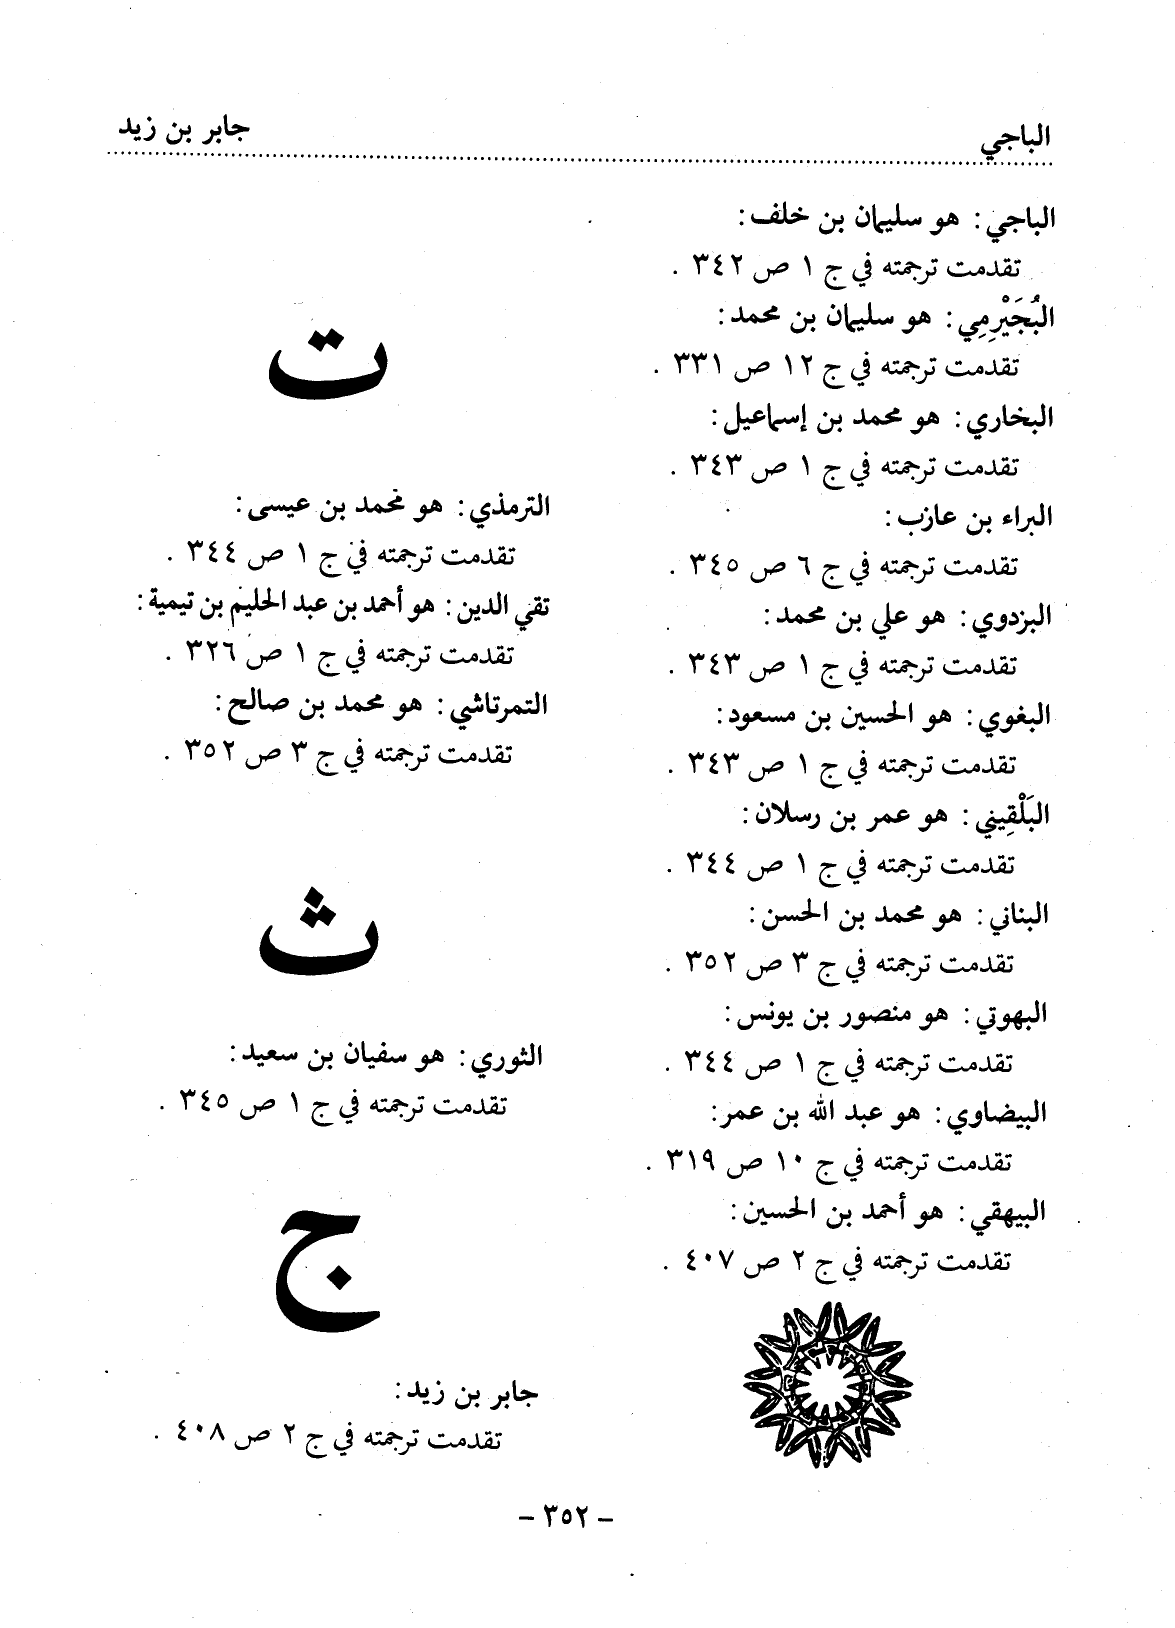 الباجي
جابر بن زيد
الباجي: هو سليمان بن خلف:
تقدمت ترجمته في ج ١ ص ٣٤٢ .
البُجَيْرِمِي: هو سليمان بن محمد:
تقدمت ترجمته في ج ١٢ ص ٣٣١ .
البخاري: هو محمد بن إسماعيل:
تقدمت ترجمته في ج ١ ص ٣٤٣ .
البراء بن عازب:
تقدمت ترجمته في ج ٦ ص ٣٤٥ .
البزدوي: هو علي بن محمد:
تقدمت ترجمته في ج ١ ص ٣٤٣ .
البغوي: هو الحسين بن مسعود:
تقدمت ترجمته في ج ١ ص ٣٤٣ .
البَلْقِيني: هو عمر بن رسلان:
تقدمت ترجمته في ج ١ ص ٣٤٤ .
البناني: هو محمد بن الحسن:
تقدمت ترجمته في ج ٣ ص ٣٥٢ .
البهوتي: هو منصور بن يونس:
تقدمت ترجمته في ج ١ ص ٣٤٤ .
البيضاوي: هو عبد الله بن عمر:
تقدمت ترجمته في ج ١٠ ص ٣١٩ .
البيهقي: هو أحمد بن الحسين:
تقدمت ترجمته في ج ٢ ص ٤٠٧ .
ت
الترمذي: هو محمد بن عيسى:
تقدمت ترجمته في ج ١ ص ٣٤٤ .
تقي الدين: هو أحمد بن عبد الحليم بن تيمية:
تقدمت ترجمته في ج ١ ص ٣٢٦ .
التمرتاشي: هو محمد بن صالح:
تقدمت ترجمته في ج ٣ ص ٣٥٢ .
ث
الثوري: هو سفيان بن سعيد:
تقدمت ترجمته في ج ١ ص ٣٤٥ .
ج
جابر بن زيد:
تقدمت ترجمته في ج ٢ ص ٤٠٨ .
- ٣٥٢ -